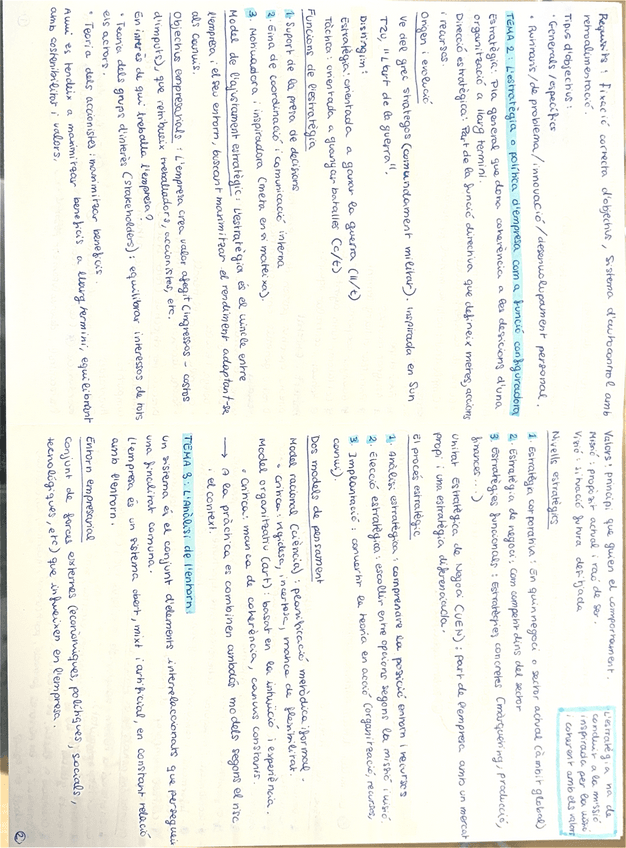 Requisits: Fixació correcta d'objectius, Sistema d'autocontrol amb
retroalimentació.
Tipus d'objectius:
· Generals/específics
· Rutinaris/de problema/innovació/desenvolupament personal.
TEMA 2: L'estratègia o política d'empresa com a funció configuradora
Estratègia: Pla general que dona coherència a les decisions d'una
organització a llarg termini.
Direcció estratègica: Part de la funció directiva que defineix metes, accions
i recursos.
Origen i evolució
ve del grec strategos (comandament militar). Inspirada en Sun
Tzu, "L'art de la guerra".
Distingim:
Estratègia: orientada a guanyar la guerra (ll/t)
Tàctica: orientada a guanyar batalles (c/t)
Funcions de l'estratègia
1. Suport de la presa de decisions
2. Eina de coordinació i comunicació interna
3. Motivadora i inspiradora (meta en sí mateixa).
Model de l'ajustament estratègic: L'estratègia és el vincle entre
l'empresa i el seu entorn, buscant maximitzar el rendiment adaptant-se
als canvis.
Objectius empresarials: L'empresa crea valor afegit (ingressos - costos
d'inputs), que retribueix treballadors, accionistes, etc.
En interès de qui treballa l'empresa?
· Teoria dels grups d'interès (stakeholders): equilibrar interessos de tots
els actors.
· Teoria dels accionistes: maximitzar beneficis.
Avui es tendeix a maximitzar beneficis a llarg termini, equilibrant
amb sostenibilitat i valors.
Valors: principi que guien el comportament.
Missió: propòsit actual i raó de ser.
Visió: situació futura desitjada
L'estratègia ha de
conduir a la missió
inspirada per la visió
i coherent amb els valors
Nivells estratègics
1. Estratègia corporativa: En quin negoci o sector actual (àmbit global)
2. Estratègia de negoci: Com competir dins del sector
3. Estratègies funcionals: Estratègies concretes (màrqueting, producció,
finances...)
Unitat Estratègica de Negoci (UEN): part de l'empresa amb un mercat
propi i una estratègia diferenciada.
El procés estratègic
1. Anàlisi estratègica: comprendre la posició entorn i recursos
2. Elecció estratègica: escollir entre opcions segons la missió i visió.
3. Implantació: convertir la teoria en acció (organització, recursos,
canvis)
Dos models de pensament
Model racional (ciència): planificació metòdica i formal.
· Crítica: rigidesa, incertesa, manca de flexibilitat.
Model organitzatiu (art): basat en la intuïció i experiència.
· Crítica: manca de coherència, canvis constants.
→ A la pràctica es combinen ambdós models segons el risc
i el context.
TEMA 3: L'Anàlisi de l'entorn
Un sistema és el conjunt d'elements interrelacionats que persegueix
una finalitat comuna.
L'empresa és un sistema obert, mixt i artificial, en constant relació
amb l'entorn.
Entorn empresarial
Conjunt de forces externes (econòmiques, polítiques, socials,
tecnològiques, etc) que influeixen en l'empresa.
2